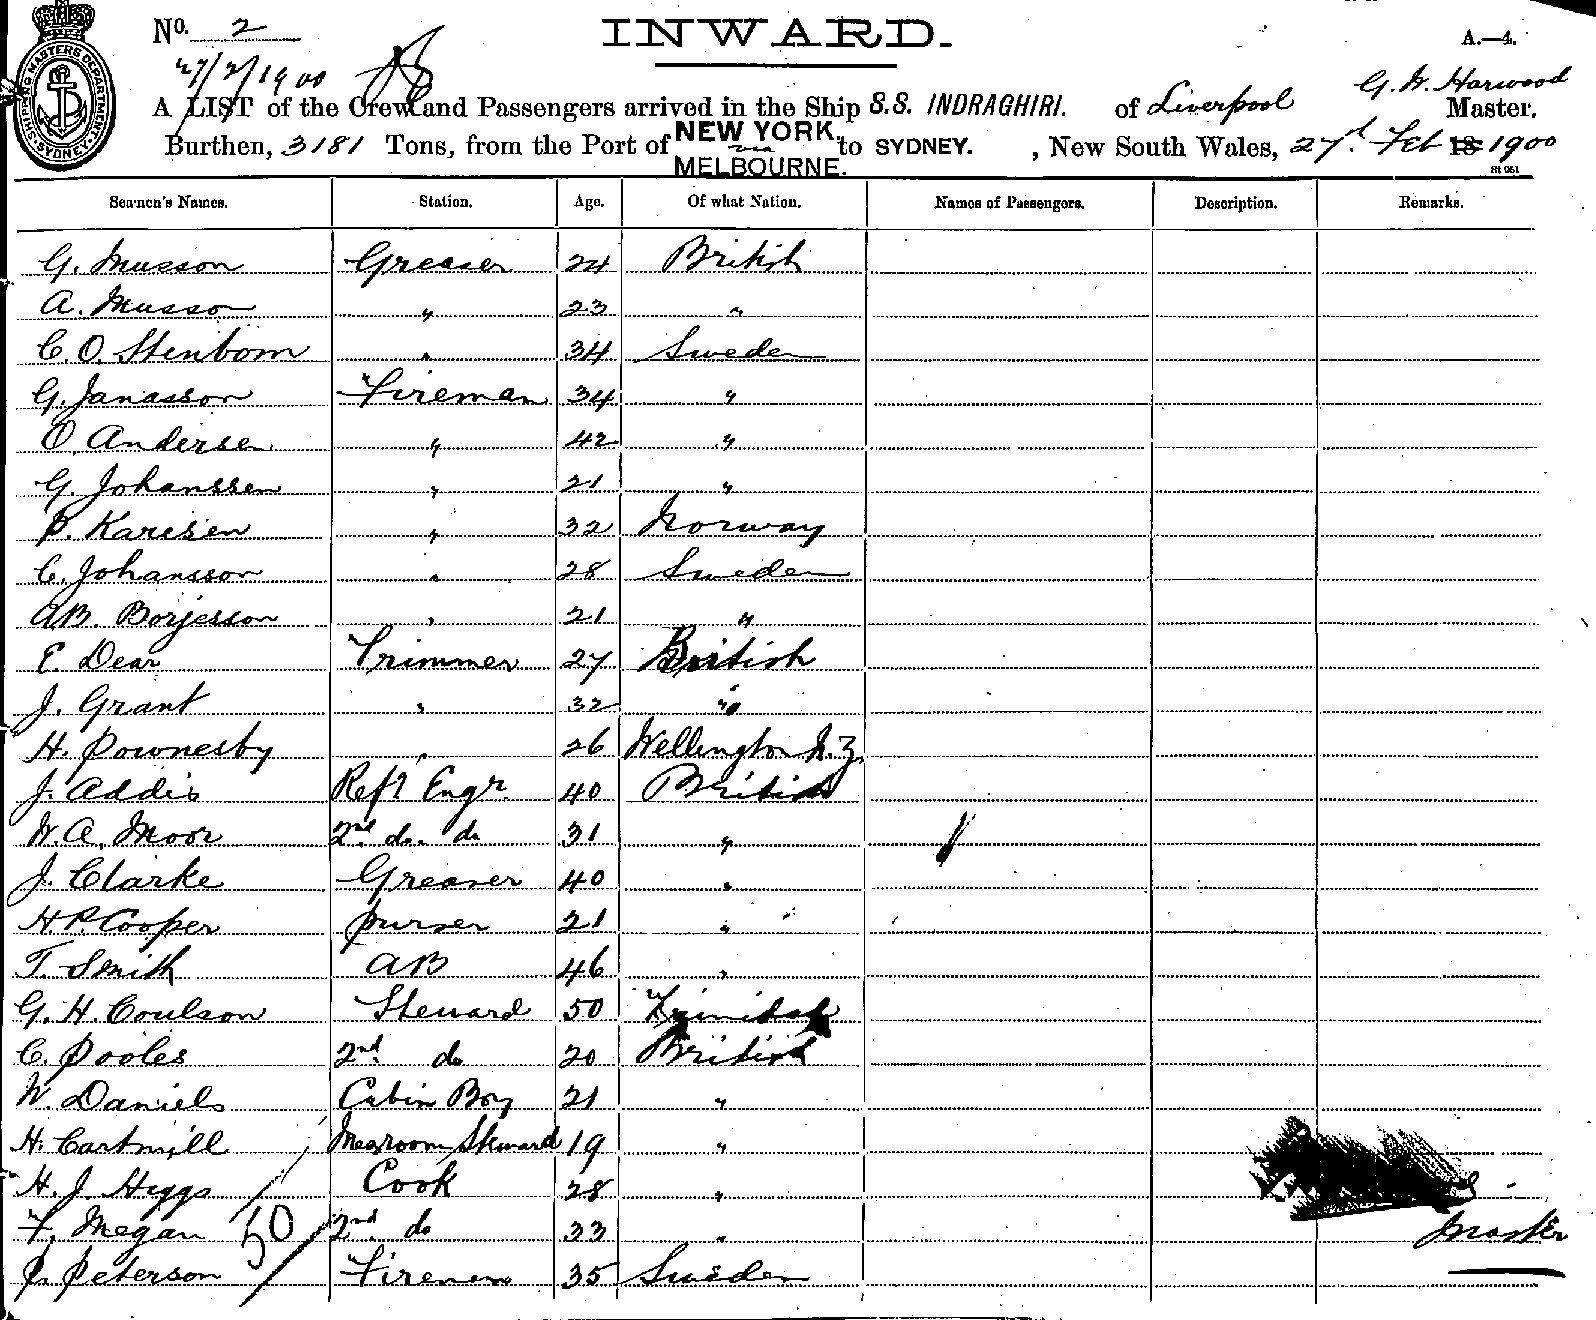 No. 2
INWARD.
A.—4.
27/2/1900
G. W. Harwood
A LIST of the Crew and Passengers arrived in the Ship S.S. INDRAGHIRI. of Liverpool Master.
Burthen, 3181 Tons, from the Port of NEW YORK via MELBOURNE. to SYDNEY. , New South Wales, 27th Feb 18 1900
SHIPPING MASTERS DEPARTMENT SYDNEY
Seamen's Names. Station. Age. Of what Nation. Names of Passengers. Description. Remarks.
G. Musson Greaser 24 British
A. Musson " 23 "
C. O. Stenbom " 34 Sweden
G. Janasson Fireman 34 "
O. Andersen " 42 "
G. Johanssen " 21 "
P. Karlsen " 32 Norway
C. Johansson " 28 Sweden
AB. Borjesson " 21 "
E. Dear Trimmer 27 British
J. Grant " 32 "
H. Pownesby " 26 Wellington N.Z.
J. Addis Refr Engr. 40 British
W. A. Moor 2nd do. do 31 "
J. Clarke Greaser 40 "
H P. Cooper purser 21 "
T. Smith AB 46 "
G. H. Coulson Steward 50 Trinidad
C. Pooles 2nd do 20 British
W. Daniels Cabin Boy 21 "
H. Cartmill Messroom Steward 19 "
H. J. Higgs Cook 28 "
F. Megan 50 2nd do 33 "
Master
P. Peterson Fireman 35 Sweden